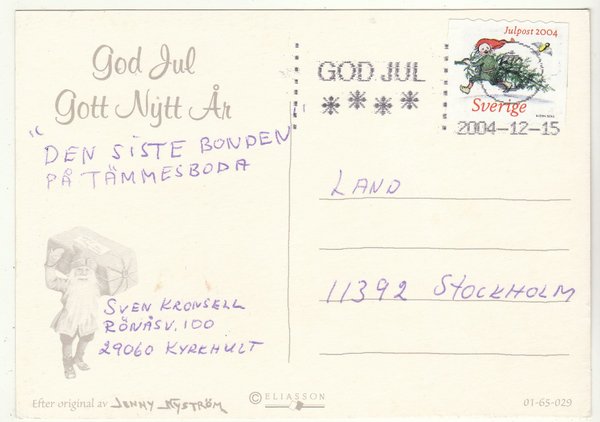 God Jul
Gott Nytt År
"DEN SISTE BONDEN
PÅ TÄMMESBODA
SVEN KRONSELL
RÖNÅSV. 100
29060 KYRKHULT
Efter original av JENNY NYSTRÖM
© ELIASSON
GOD JUL
Julpost 2004
Sverige
2004-12-15
LAND
11392 STOCKHOLM
01-65-029